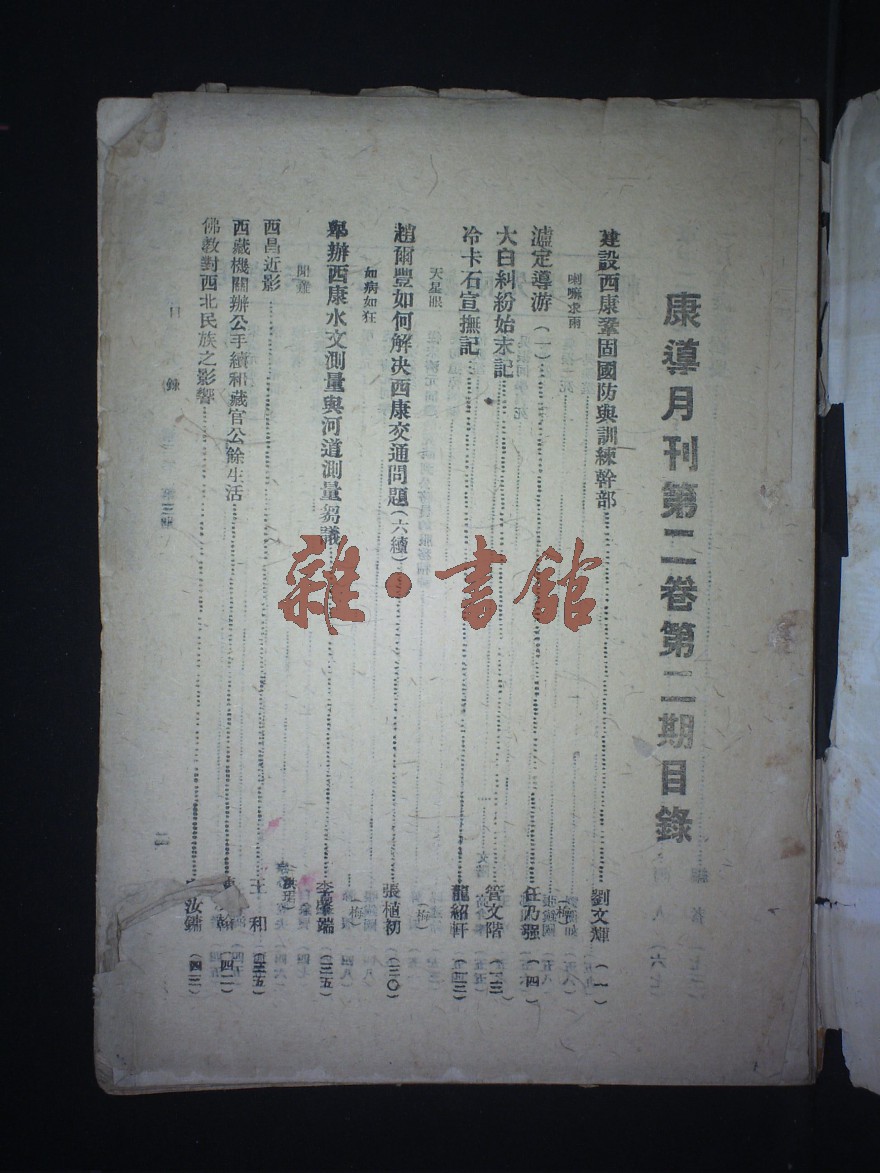 康導月刊第二卷第二期目錄
建設西康鞏固國防與訓練幹部……劉文輝(一)
喇嘛求雨……(梅)
瀘定導游(一)……任乃强(四)
大白糾紛始末記……管文階
冷卡石宣撫記……龍紹軒
天星眼……(梅)
趙爾豐如何解決西康交通問題(六續)……張植初(三〇)
如病如狂……(梅)
舉辦西康水文測量與河道測量芻議……李肇端(三五)
西昌近影……王和
西藏機關辦公手續和藏官公餘生活
佛教對西北民族之影響……汝鏽
目錄
雜·書館